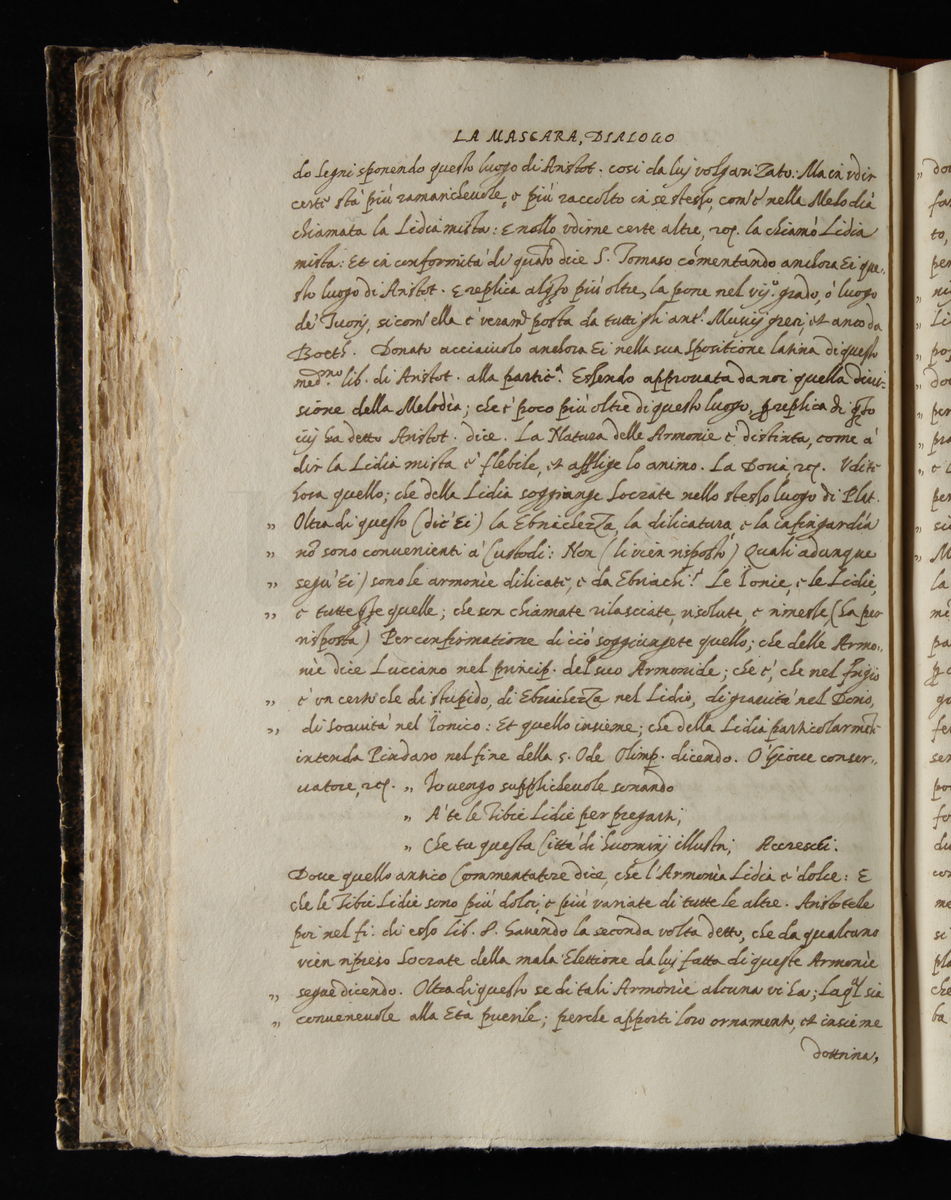 LA MASCARA, DIALOGO
do Segni sponendo questo luogo di Aristot. cosi da luj volgariZato: Ma in vdir
certe stà più ramarichevole, e più raccolto in se stesso, com'è nella Melodìa
chiamata la Lidia mista: E nollo vdirne certe altre, la chiamò Lidia
mista: Et in conformità di quāto dice S. Tomaso comentando anchora Ei que-
sto luogo di Aristot. E replica alqto più oltre, la pone nel vij.º grado, ò luogo
de' Tuonj, sicom'ella è veramte posta da tutti gli ant.i Musicj greci, et anco da
Boet.o. Donato acciaiuolo anchora Ei nella sua sposittione latina di questo
medmo. lib. di Aristot. alla partic.a Essendo approvata da noi quella divi-
sione della Melodìa; che è poco più oltre di questo luogo, replica di qto
iuj ha detto Aristot. dice. La Natura delle Armonie è distinta, come à
dir la Lidia mista è flebile, et afflige lo animo. La Doria, Vdite
hora quello; che della Lidia soggiunge Socrate nello stesso luogo di Plat.
„ Oltra di questo (dic'Ei) la EbriacheZza, la dilicatura, e la infingardìa
„ nō sono convenienti à Custodi: Non (li vien risposto) Quali adunque
„ segu'Ei) sono le armonìe dilicate, e da Ebriachi? Le Ionie, e le Lidie,
„ e tutte quelle; che son chiamate rilasciate, risolute, e rimesse, (ha per
risposta) Per confirmatione di ciò soggiungete quello; che delle Armo-
nìe dice Luciano nel princip. del suo Armonide; che è, che nel frigio
„ è vn certo che di stupido, di EbriacheZza nel Lidio, di gravità nel Dorio,
„ di soavità nel Ionico: Et quello insieme; che della Lidia particolarmte
intenda Pindaro nel fine della 5. Ode Olimp. dicendo. O' Giove conser-
vatore, „ Io vengo supplichevole sonando
„ A' te le Tibie Lidie per pregarti;
„ Che tu questa Città di huominj illustri, Accreschi.
Dove quello antico Commentatore dice, che l'Armonìa Lidia è dolce: E
che le Tibie Lidie sono più dolci, e più variate di tutte le altre. Aristotele
poi nel fi. di esso lib. 8. havendo la seconda volta detto, che da qualcuno
vien ripreso Socrate della mala Elettione da luj fatta di queste Armonìe
„ segue dicendo. Oltra di questo se di tali Armonìe alcuna vi ha; la ql sia
„ convenevole alla Età puerile; perche apporti loro ornamento, et insieme
dottrina,